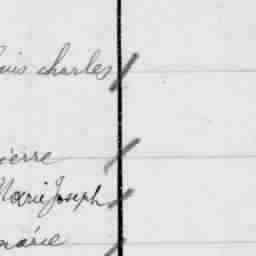 uis charles
ierre
Marie Joseph
marie